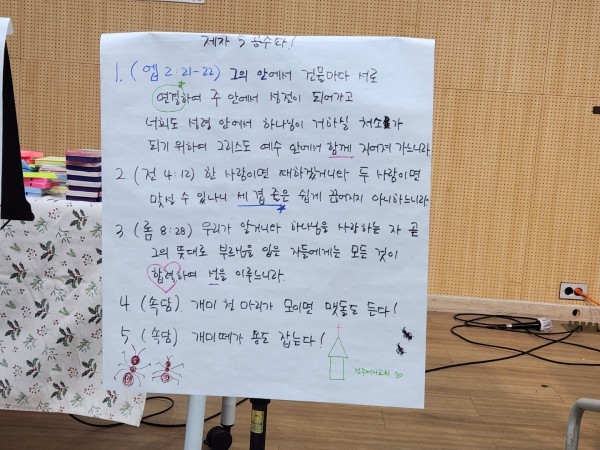 제자 5 공수다!
1. (엡 2:21-22) 그의 안에서 건물마다 서로
연결하여 주 안에서 성전이 되어가고
너희도 성령 안에서 하나님이 거하실 처소가
되기 위하여 그리스도 예수 안에서 함께 지어져 가느니라
2 (전 4:12) 한 사람이면 패하겠거니와 두 사람이면
맞설 수 있나니 세 겹 줄은 쉽게 끊어지지 아니하느니라
3 (롬 8:28) 우리가 알거니와 하나님을 사랑하는 자 곧
그의 뜻대로 부르심을 입은 자들에게는 모든 것이
합력하여 선을 이루느니라.
4 (속담) 개미 천 마리가 모이면 맷돌도 든다!
5 (속담) 개미떼가 용도 잡는다!